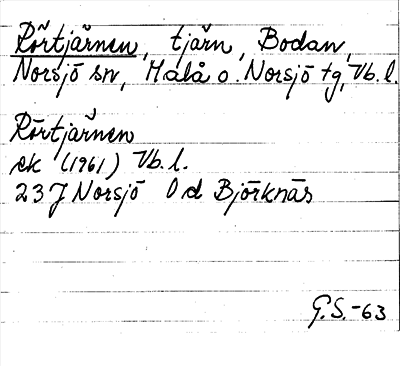 Rörtjärnen, tjärn, Bodan,
Norsjö sn, Malå o. Norsjö tg, Vb. l.
Rörtjärnen
ek (1961) Vb. l.
23 J Norsjö 0 d Björknäs
G.S.-63